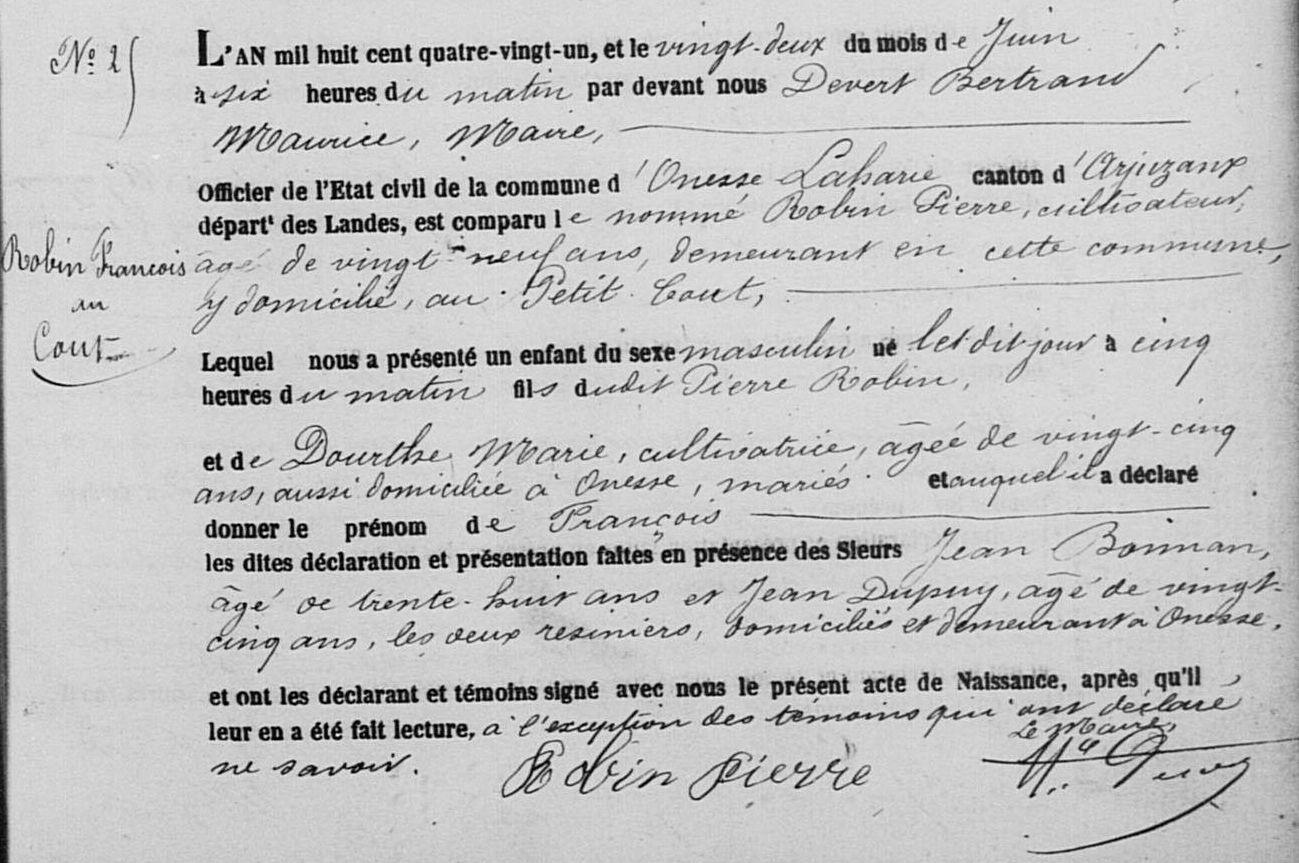 N° 25
L'AN mil huit cent quatre-vingt-un, et le vingt-deux du mois de Juin
à six heures du matin par devant nous Devert Bertrand
Maurice, Maire,
Officier de l'Etat civil de la commune d'Onesse Laharie canton d'Arjuzanx
départt des Landes, est comparu le nommé Robin Pierre, cultivateur,
âgé de vingt-neuf ans, demeurant en cette commune,
y domicilié, au Petit Cout,
Robin Francois
au
Cout
Lequel nous a présenté un enfant du sexe masculin né ledit jour à cinq
heures du matin fils dudit Pierre Robin,
et de Dourthe Marie, cultivatrice, âgée de vingt-cinq
ans, aussi domiciliée à Onesse, mariés et auquel il a déclaré
donner le prénom de François
les dites déclaration et présentation faites en présence des Sieurs Jean
âgé de trente-huit ans et Jean Dupuy, âgé de vingt-
cinq ans, les deux resiniers, domiciliés et demeurant à Onesse.
et ont les déclarant et témoins signé avec nous le présent acte de Naissance, après qu'il
leur en a été fait lecture, à l'exception des témoins qui ont déclaré
ne savoir.
Le Maire,
Robin Pierre